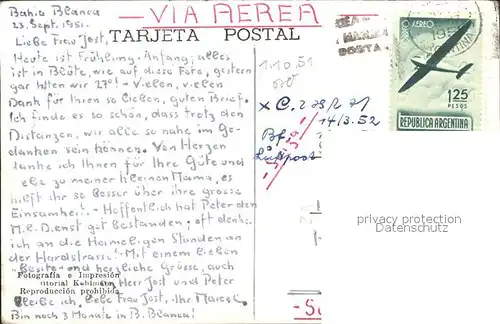 Bahia Blanca
23. Sept. 1951.
- VIA AEREA -
TARJETA POSTAL
Liebe Frau Jost,
Heute ist Frühling-Anfang; alles
ist in Blüte, wie auf diese Foto, gestern
gar hatten wir 27°! - Vielen, vielen
Dank für Ihren so lieben, guten Brief.
Ich finde es so schön, dass trotz den
Distanzen, wir alle so nahe im Ge-
danken sein können. Von Herzen
danke ich Ihnen für Ihre Güte und
Liebe zu meiner kleinen Mama, es
hilft ihr so besser über ihre grosse
Einsamkeit! - Hoffentlich hat Peter den
M.L.Dienst gut bestanden; oft denke
ich an die Heimeligen Stunden an
der Hardstrasse! - Mit einem lieben
Besito und herzliche Grüsse, auch
Herr Jost und Peter
bleibe ich, liebe Frau Jost, Ihr Marcel.
Bin noch 3 Monate in B. Blanca!
Fotografía e Impresión
itorial Kohlmann
Reproducción prohibida
1.10.51
x C. 278/271
14/3.52
Bf.
Luftpost
CORREO AEREO
1.25
PESOS
REPUBLICA ARGENTINA
privacy protection
Datenschutz